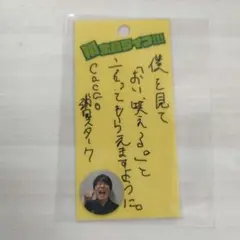 全員ライブ!!!
僕を見て
「おい、咲える。」と
言ってもらえますように。
cacao
浦田スターク